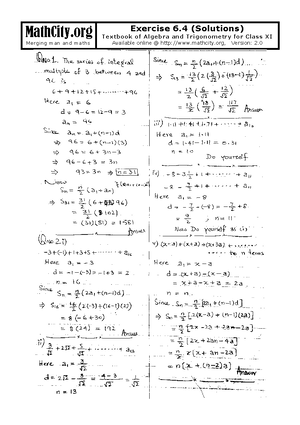 MathCity.org
Merging man and maths
Exercise 6.4 (Solutions)
Textbook of Algebra and Trigonometry for Class XI
Available online @ http://www.mathcity.org, Version: 2.0
Ques 1. The series of integral
multiple of 3 between 4 and
97 is
6 + 9 + 12 + 15 + ------- + 96
Here a₁ = 6
d = 9 - 6 = 12 - 9 = 3
aₙ = 96
Since aₙ = a₁ + (n-1)d
⇒ 96 = 6 + (n-1)(3)
⇒ 96 = 6 + 3n - 3
⇒ 96 - 6 + 3 = 3n
93 = 3n ⇒ n = 31
Now
Sₙ = n/2 (a₁ + aₙ)
⇒ S₃₁ = 31/2 (6 + 96)
= 31/2 (102)
= (31)(51) = 1581
Answer
Ques 2. i)
-3 + (-1) + 1 + 3 + 5 + ------ + a₁₆
Here a₁ = -3
d = -1 - (-3) = -1 + 3 = 2
n = 16
Since Sₙ = n/2 [2a₁ + (n-1)d]
⇒ S₁₆ = 16/2 [2(-3) + (16-1)(2)]
= 8 (-6 + 30)
= 8 (24) = 192 Answer
ii) 3/√2 + 2√2 + 5/√2 + ------- + a₁₃
Here a₁ = 3/√2
d = 2√2 - 3/√2 = (4-3)/√2 = 1/√2
n = 13
Since Sₙ = n/2 (2a₁ + (n-1)d)
⇒ S₁₃ = 13/2 (2(3/√2) + (13-1)(1/√2))
= 13/2 (6/√2 + 12/√2)
= 13/2 (18/√2) = 117/√2 Answer
iii) 1.11 + 1.41 + 1.71 + ------ + a₁₀
Here a₁ = 1.11
d = 1.41 - 1.11 = 0.30
n = 10
Do yourself
iv) -8 - 3½ + 1 + ------ + a₁₁
Here a₁ = -8
n = 11
Now Do yourself as
v) (x-a) + (x+a) + (x+3a) + ------
to n terms
Here a₁ = x - a
d = (x+a) - (x-a)
= x + a - x + a = 2a
n = n
Since Sₙ = n/2 [2a₁ + (n-1)d]
⇒ Sₙ = n/2 [2(x-a) + (n-1)(2a)]
= n/2 [2x - 2a + 2an - 2a]
= n/2 [2x + 2an - 4a]
= n [x + (n-2)a] Answer